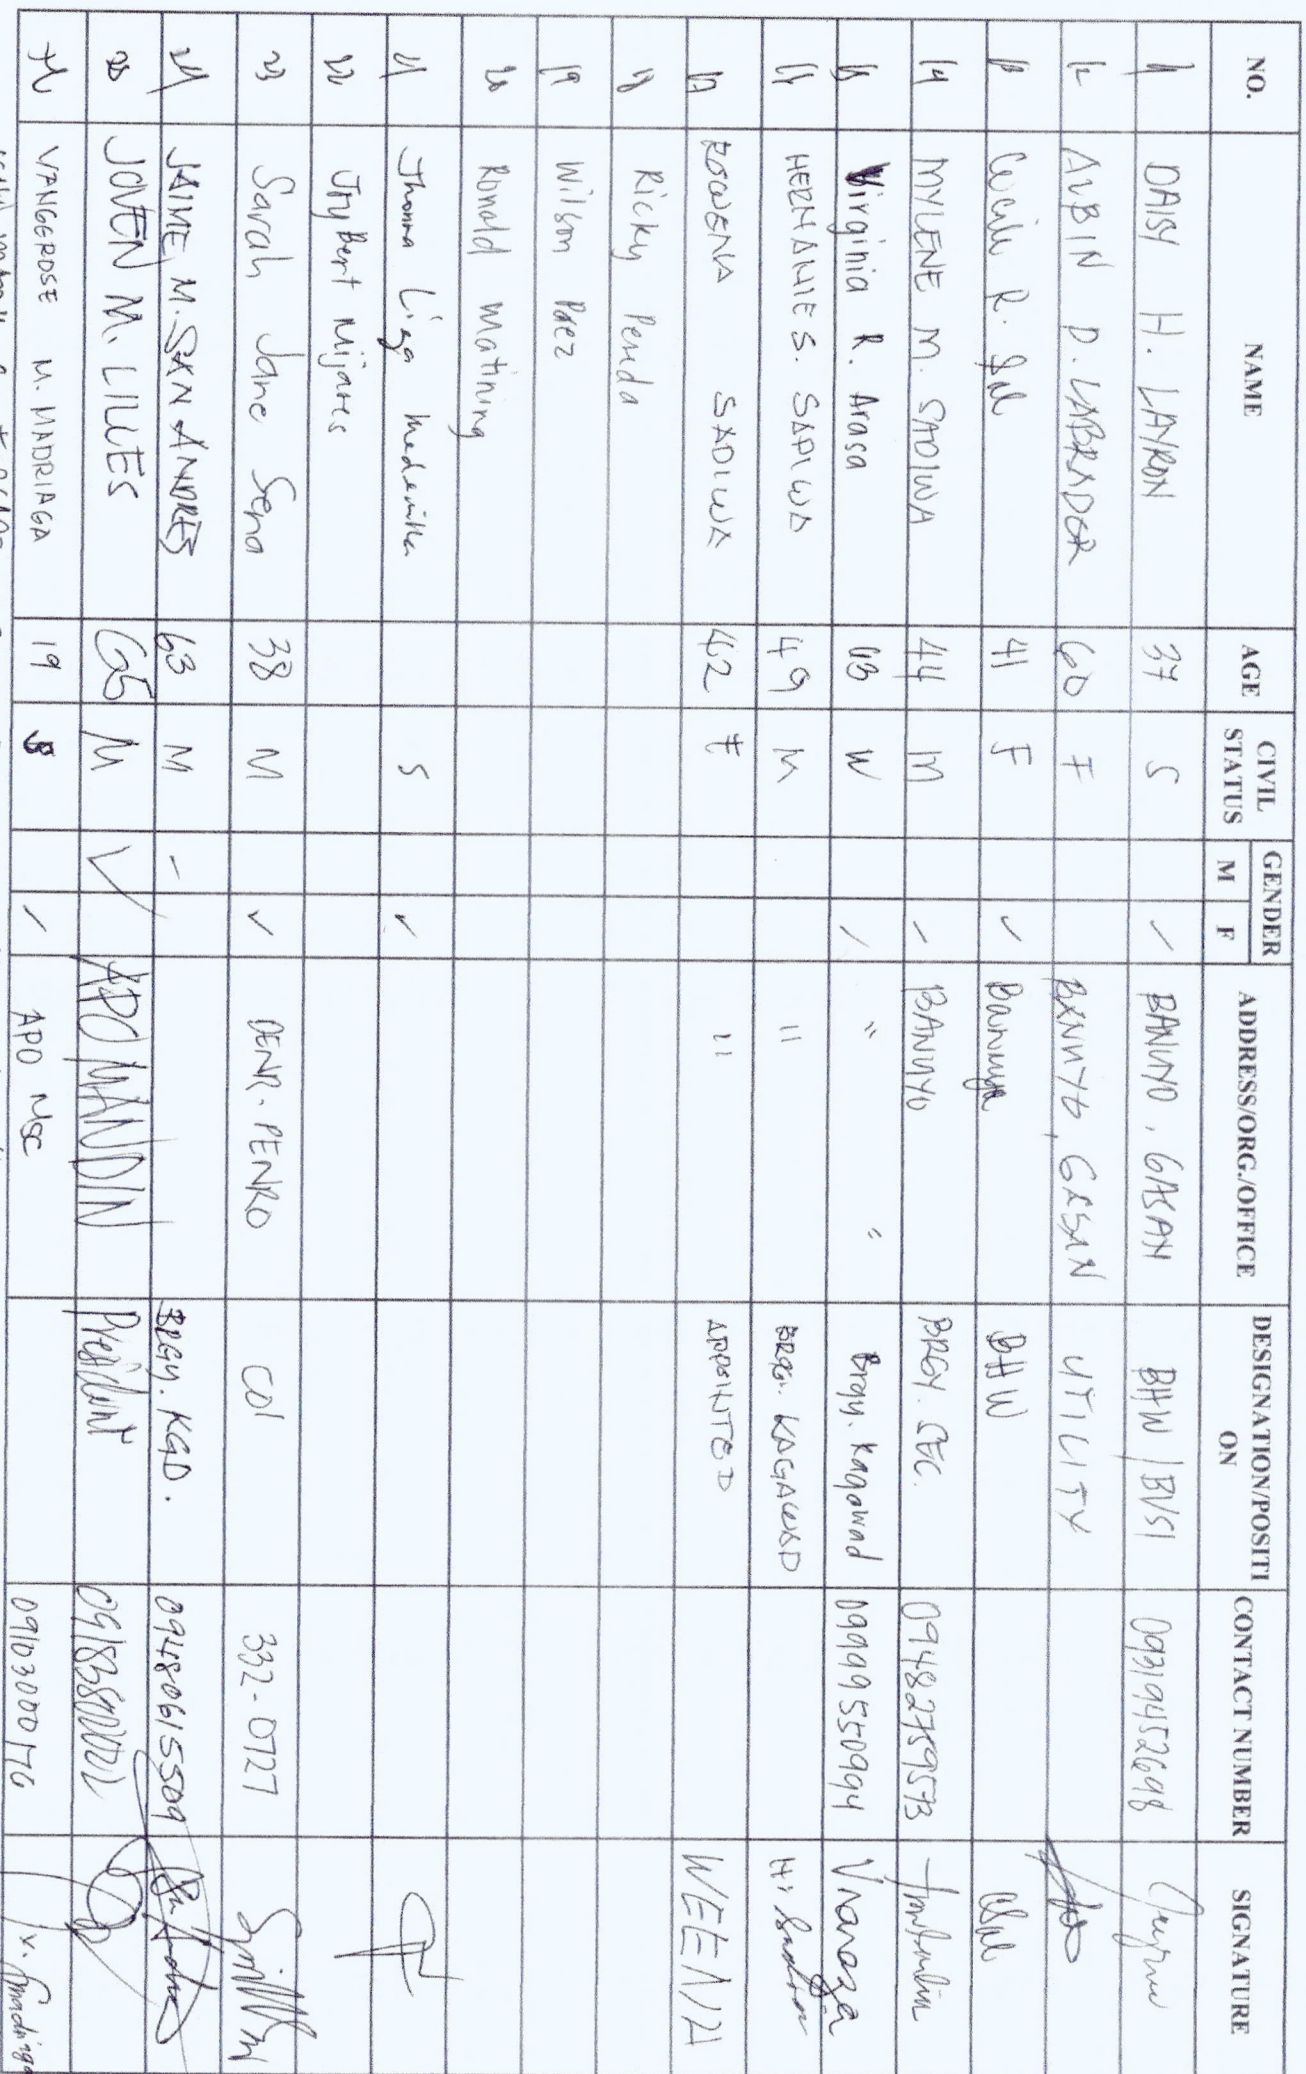 NO. NAME AGE CIVIL STATUS GENDER M F ADDRESS/ORG./OFFICE DESIGNATION/POSITION CONTACT NUMBER SIGNATURE
DAISY H. LAYRON 37 S / BANUYO, GASAN BHW/BVSI 09319452698
12 AUBIN D. LABRADOR 60 F BANUYO, GASAN UTILITY
13 Cecile R. 41 F ✓ Banuyo BHW
14 MYLENE M. SADIWA 44 M / BANUYO BRGY. SEC. 09482759573
15 Virginia R. Arasa 63 W / " " Brgy. Kagawad 09999550994
16 HERNANIE S. SADIWA 49 M " BRGY. KAGAWAD
17 ROWENA SADIWA 42 F " APPOINTED WEENA
18 Ricky Penda
19 Wilson Paez
20 Ronald Matining
21 Jhonna Liza Medenilla S ✓
22 Jrybert Mijares
23 Sarah Jane Sena 38 M ✓ DENR-PENRO 332-0727
24 JAIME M. SAN ANDRES 63 M / BRGY. KGD. 09480615509
25 JOVEN M. LILLES 65 M ✓ APO MANDIN President
26 VANGEROSE M. MADRIAGA 19 S / APO MSC 09103000176